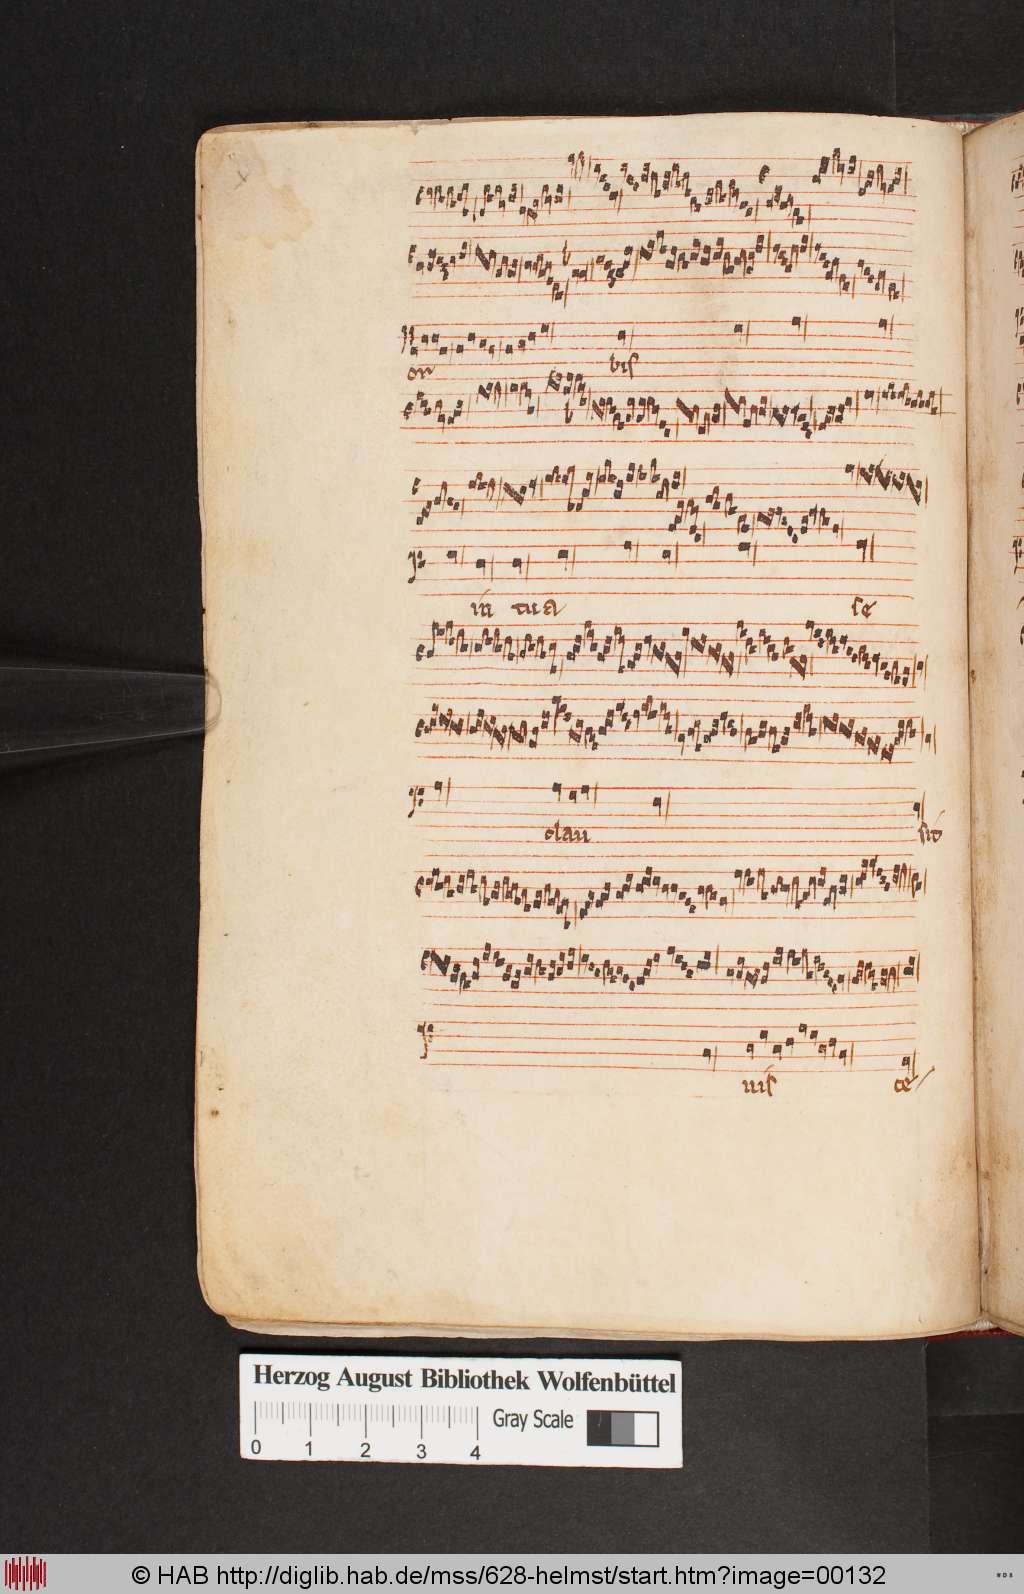 or bis
in tua se
clau sit
uis ce
Herzog August Bibliothek Wolfenbüttel
0 1 2 3 4 Gray Scale
© HAB http://diglib.hab.de/mss/628-helmst/start.htm?image=00132